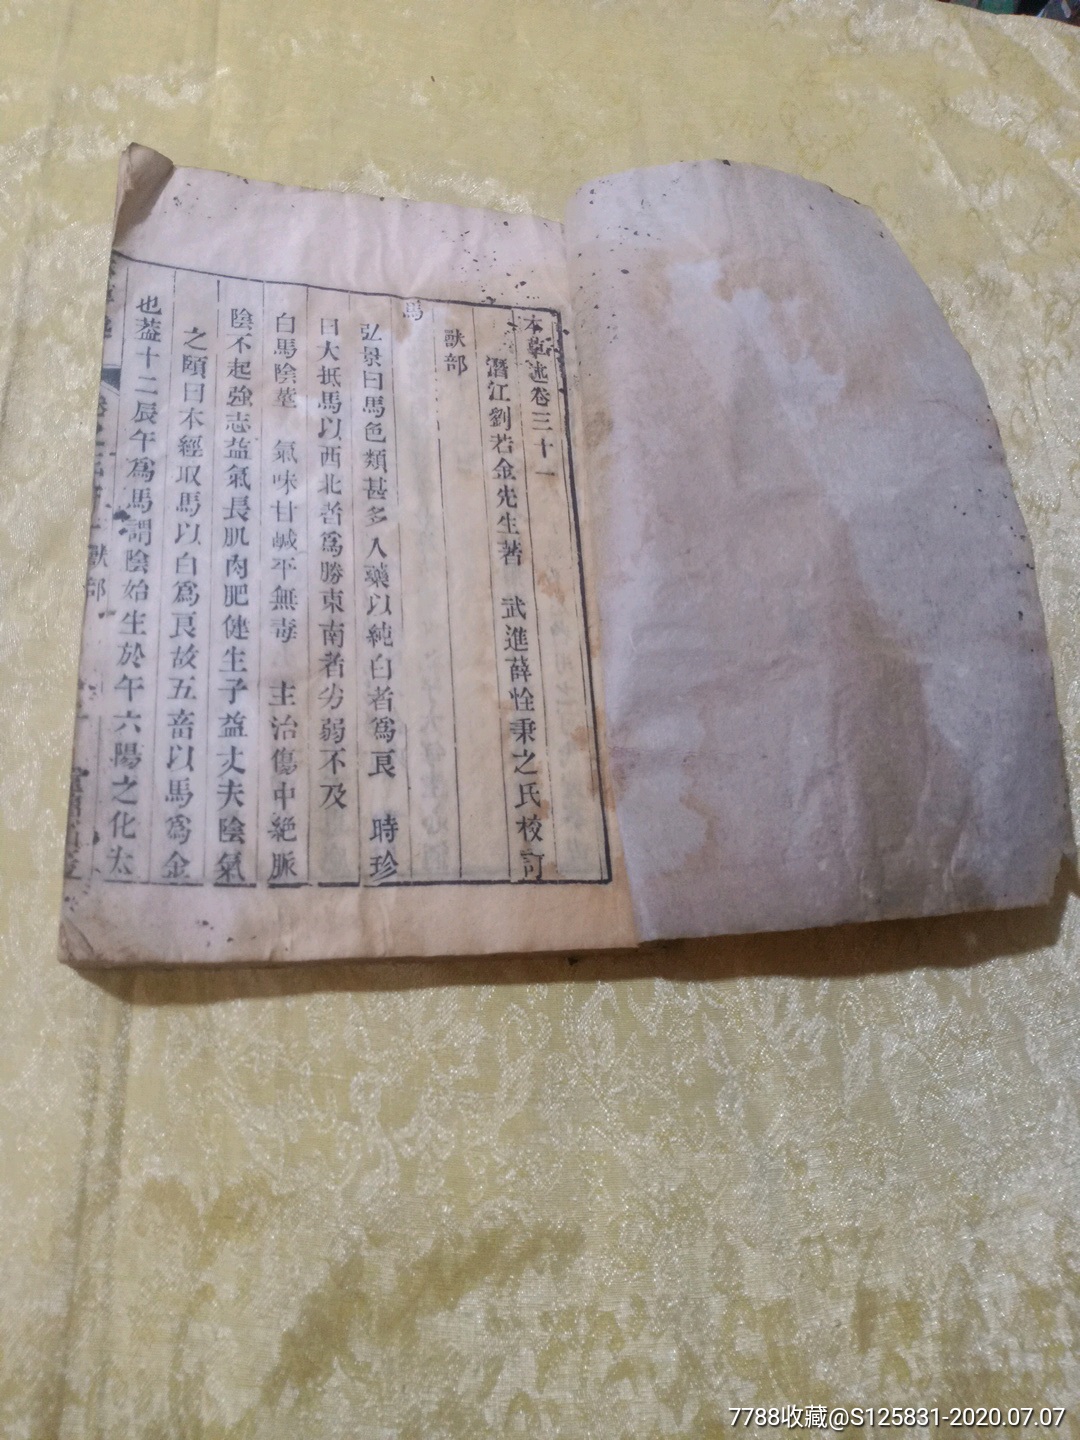 本草述卷三十一
潛江劉若金先生著 武進薛恮秉之氏校訂
獸部
馬
弘景曰馬色類甚多入藥以純白者爲良 時珍
曰大抵馬以西北者爲勝東南者劣弱不及
白馬陰莖 氣味甘鹹平無毒 主治傷中絕脈
陰不起強志益氣長肌肉肥健生子益丈夫陰氣
之頤曰本經取馬以白爲良故五畜以馬爲金
也蓋十二辰午爲馬謂陰始生於午六陽之化太
獸部
7788收藏@S125831-2020.07.07